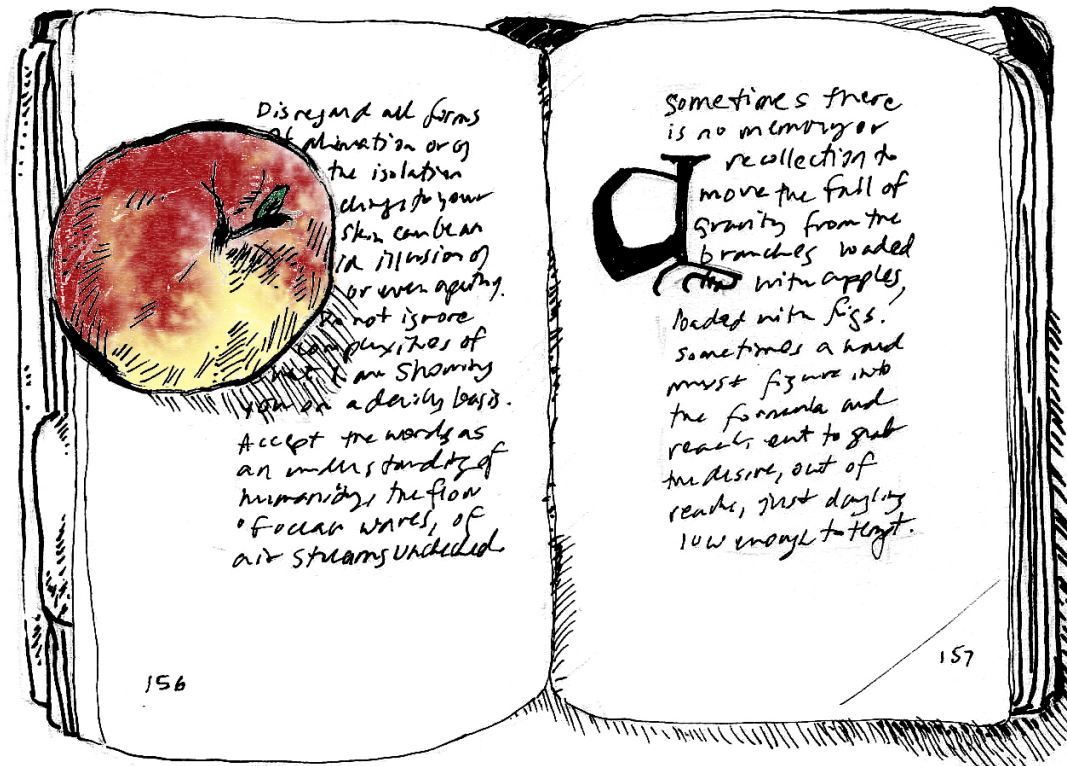 Disregard all forms
of alienation or of
the isolation
clings to your
skin can be an
illusion of
or even apathy.
Do not ignore
complexities of
what I am showing
you on a daily basis.
Accept the words as
an understanding of
humanity, the flow
of ocean waves, of
air streams unchecked
156
sometimes there
is no memory or
recollection to
move the fall of
gravity from the
branches loaded
with apples,
loaded with figs.
sometimes a hand
must figure into
the formula and
reach out to grab
the desire, out of
reach, just dangling
low enough to tempt.
a
157